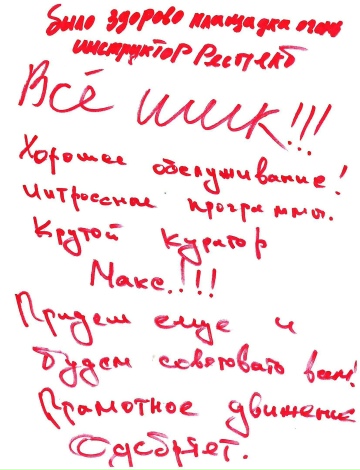 Было здорово площадка огонь
инструктор Респект
Всё шик!!!
Хорошее обслуживание!
Интросные программы.
Крутой куратор
Макс.!!!
Придем еще и
будем советовать вам!
Грамотное движение
Одобряет.